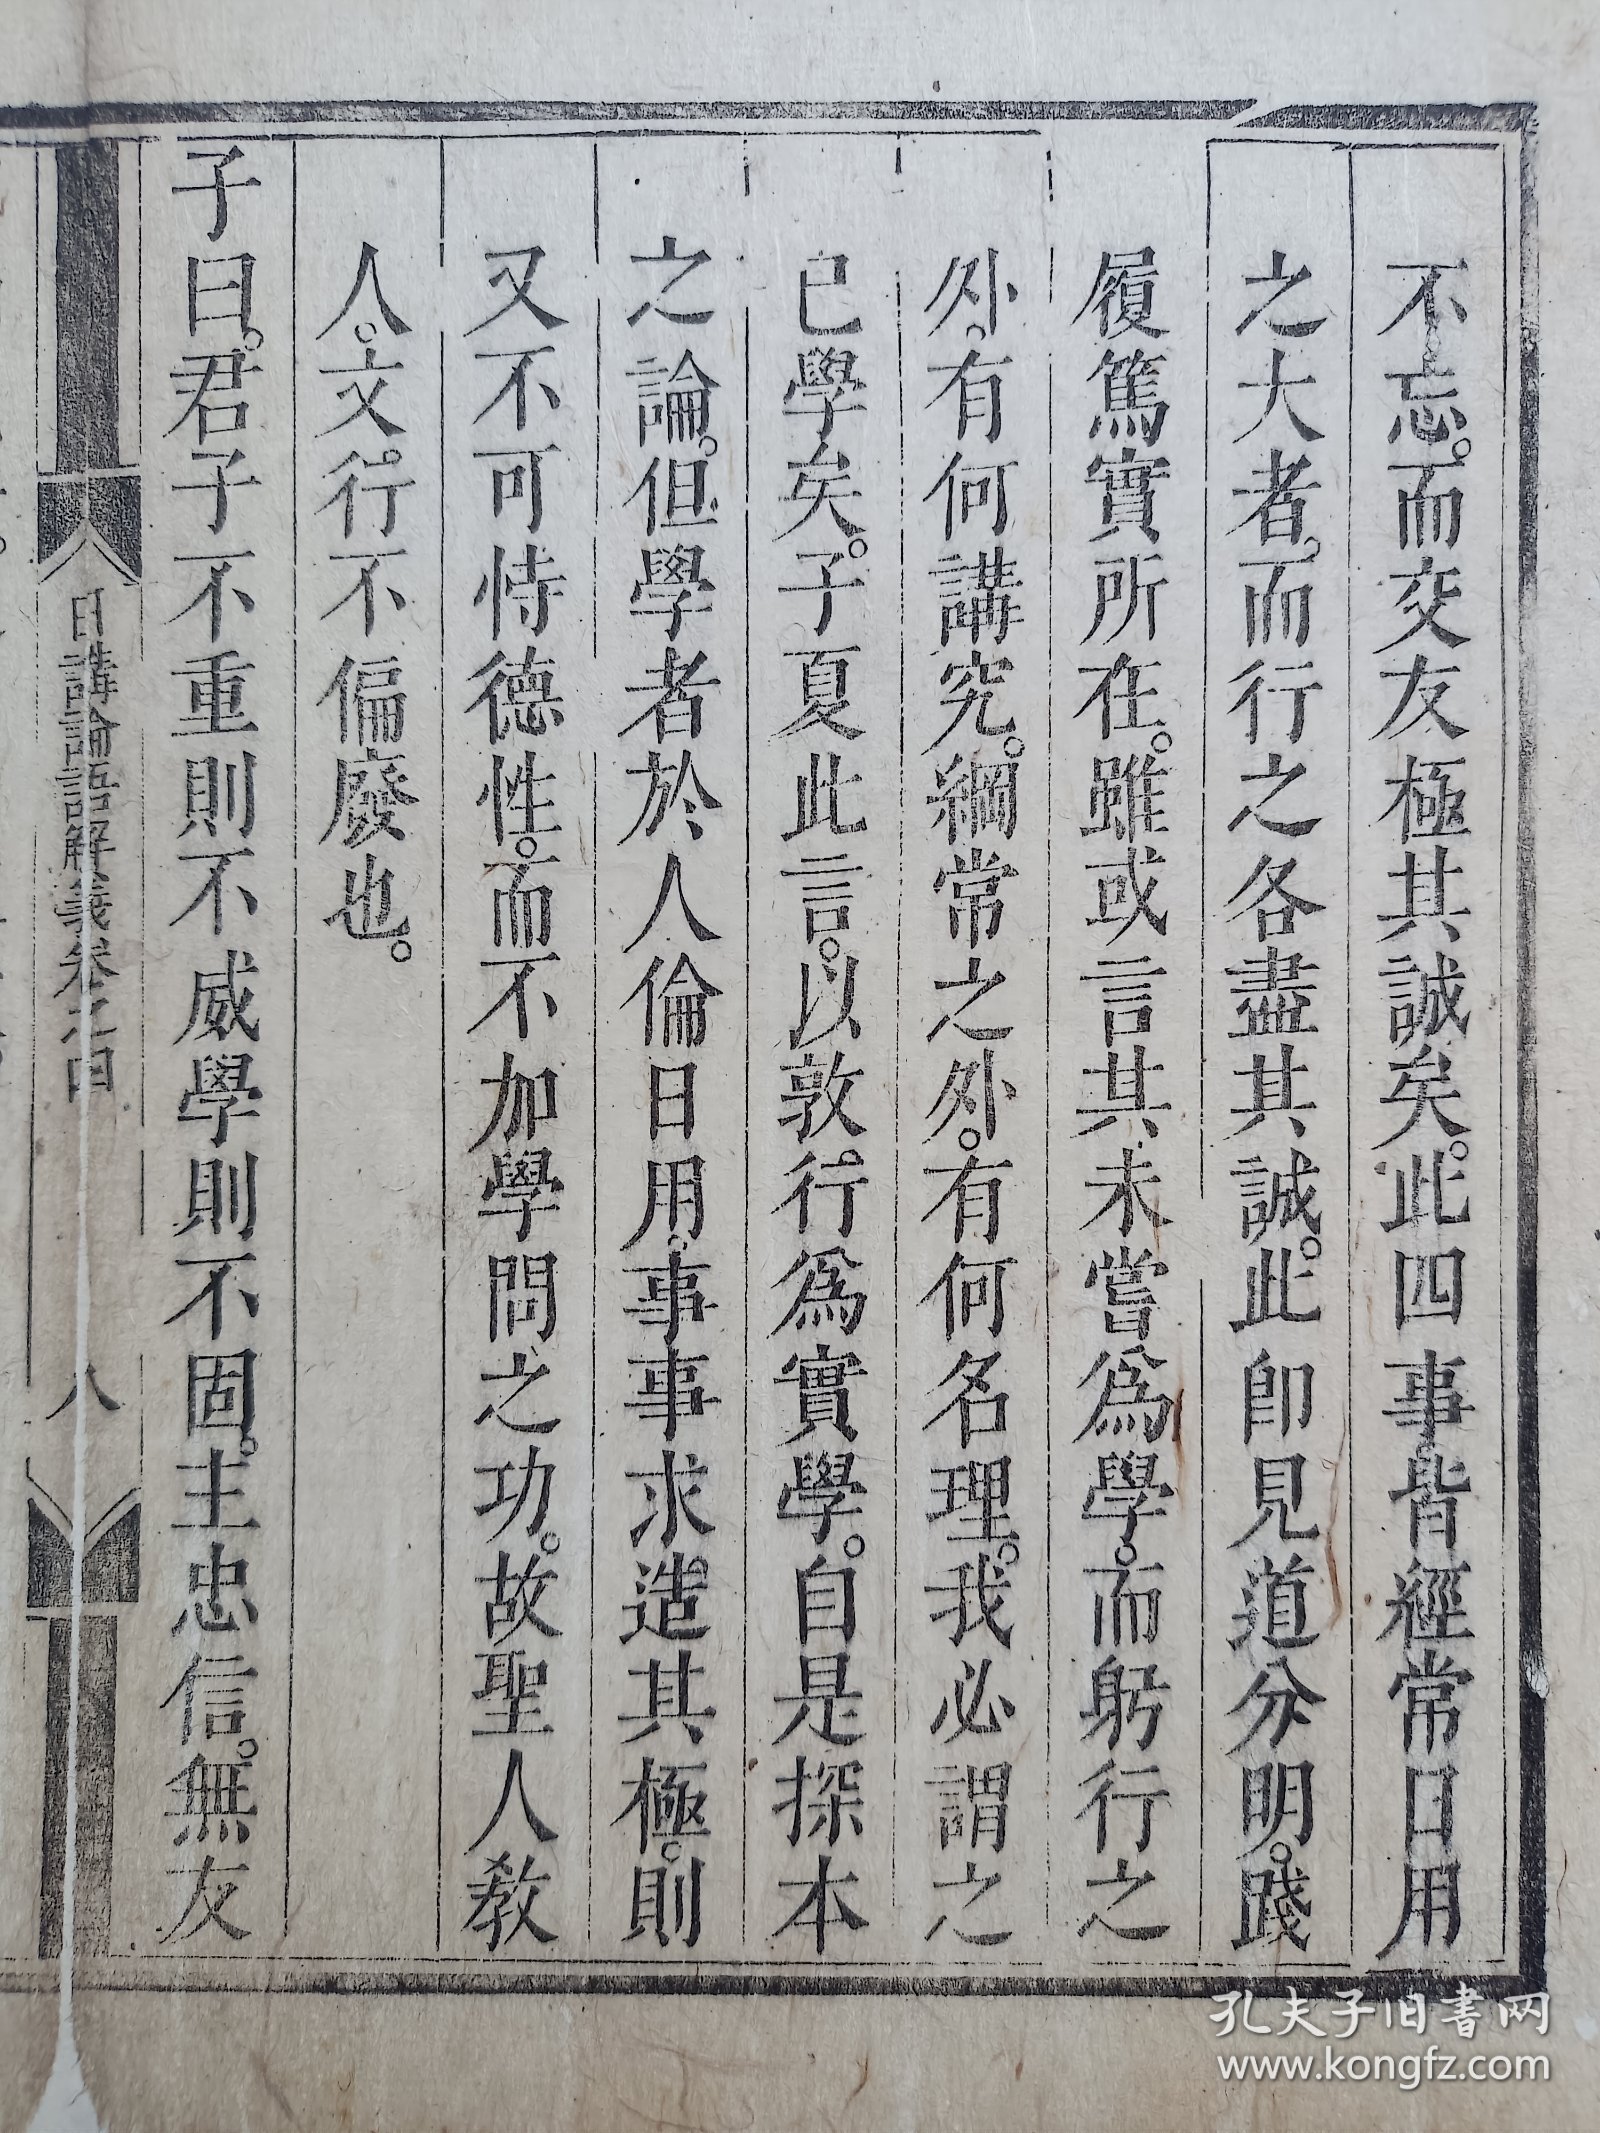 不忘。而交友極其誠矣。此四事。皆經常日用
之大者。而行之各盡其誠。此即見道分明。踐
履篤實所在。雖或言其未嘗爲學。而躬行之
外。有何講究。綱常之外。有何名理。我必謂之
已學矣。子夏此言。以敦行爲實學。自是探本
之論。但學者於人倫日用。事事求造其極。則
又不可恃德性。而不加學問之功。故聖人教
人。文行不偏廢也。
子曰。君子不重則不威學則不固。主忠信。無友
日講論語解義卷之四
八
孔夫子旧书网
www.kongfz.com